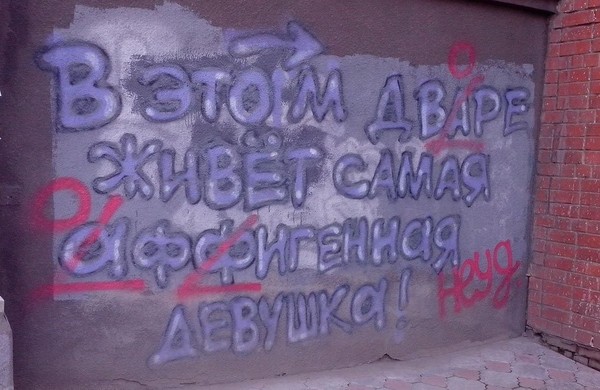 В ЭТОМ ДВАРЕ
ЖИВЁТ САМАЯ
аффигенная
ДЕВУШКа!
о
о
неуд.